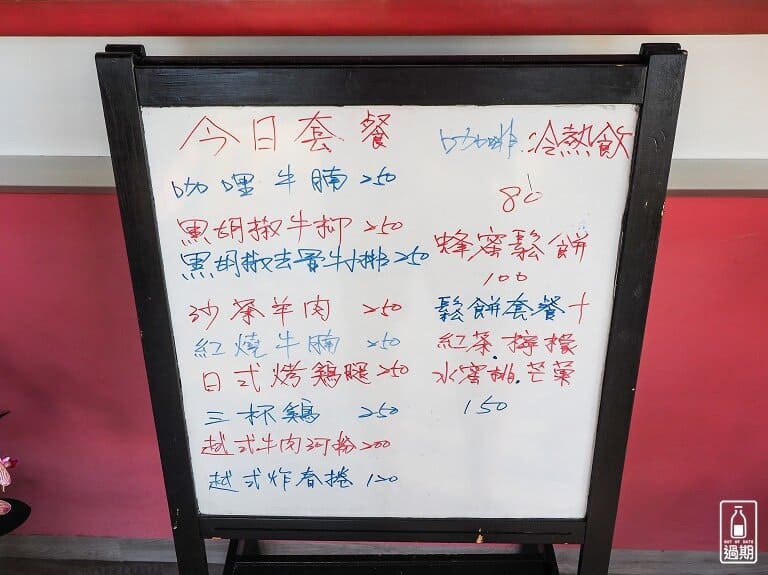 今日套餐
咖哩牛腩 250
黑胡椒牛柳 250
黑胡椒去骨牛排 250
沙茶羊肉 250
紅燒牛腩 250
日式烤鷄腿 250
三杯鷄 250
越式牛肉河粉 200
越式炸春捲 120
咖啡.冷熱飲
80
蜂蜜鬆餅
100
鬆餅套餐+
紅茶.檸檬
水蜜桃.芒菓
150
OUT OF DATE
過期